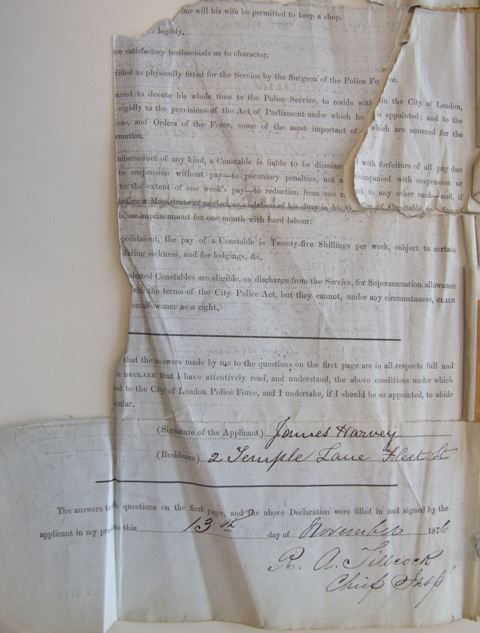 nor will his wife be permitted to keep a shop.
legibly.
satisfactory testimonials as to character.
as physically fitted for the Service by the Surgeon of the Police Fo ce.
to devote his whole time to the Police Service, to reside with in the City of London,
rigidly to the provisions of the Act of Parliament under which he is appointed; and to the
and Orders of the Force, some of the most important of which are annexed for the
misconduct of any kind, a Constable is liable to be dismiss d with forfeiture of all pay due
suspension without pay—to pecuniary penalties, not a companied with suspension or
the extent of one week's pay—to reduction from one ra k to any other rank—and, if
before a Magistrate of neglect or violation of his duty in his O of Constable
or imprisonment for one month with hard labour.
the pay of a Constable is Twenty-five Shillings per week, subject to certain
during sickness, and for lodgings, &c.
Constables are eligible, on discharge from the Service, for Superannuation allowance
with the terms of the City Police Act, but they cannot, under any circumstances, CLAIM
allowance as a right.
that the answers made by me to the questions on the first page are in all respects full and
DECLARE that I have attentively read, and understand, the above conditions under which
to the City of London Police Force, and I undertake, if I should be so appointed, to abide
(Signature of the Applicant) James Harvey
(Residence) 2 Temple Lane Fleet St
The answers to questions on the first page, and the above Declaration were filled in and signed by the
applicant in my pre e this 13th day of November 1876
Chief Insp